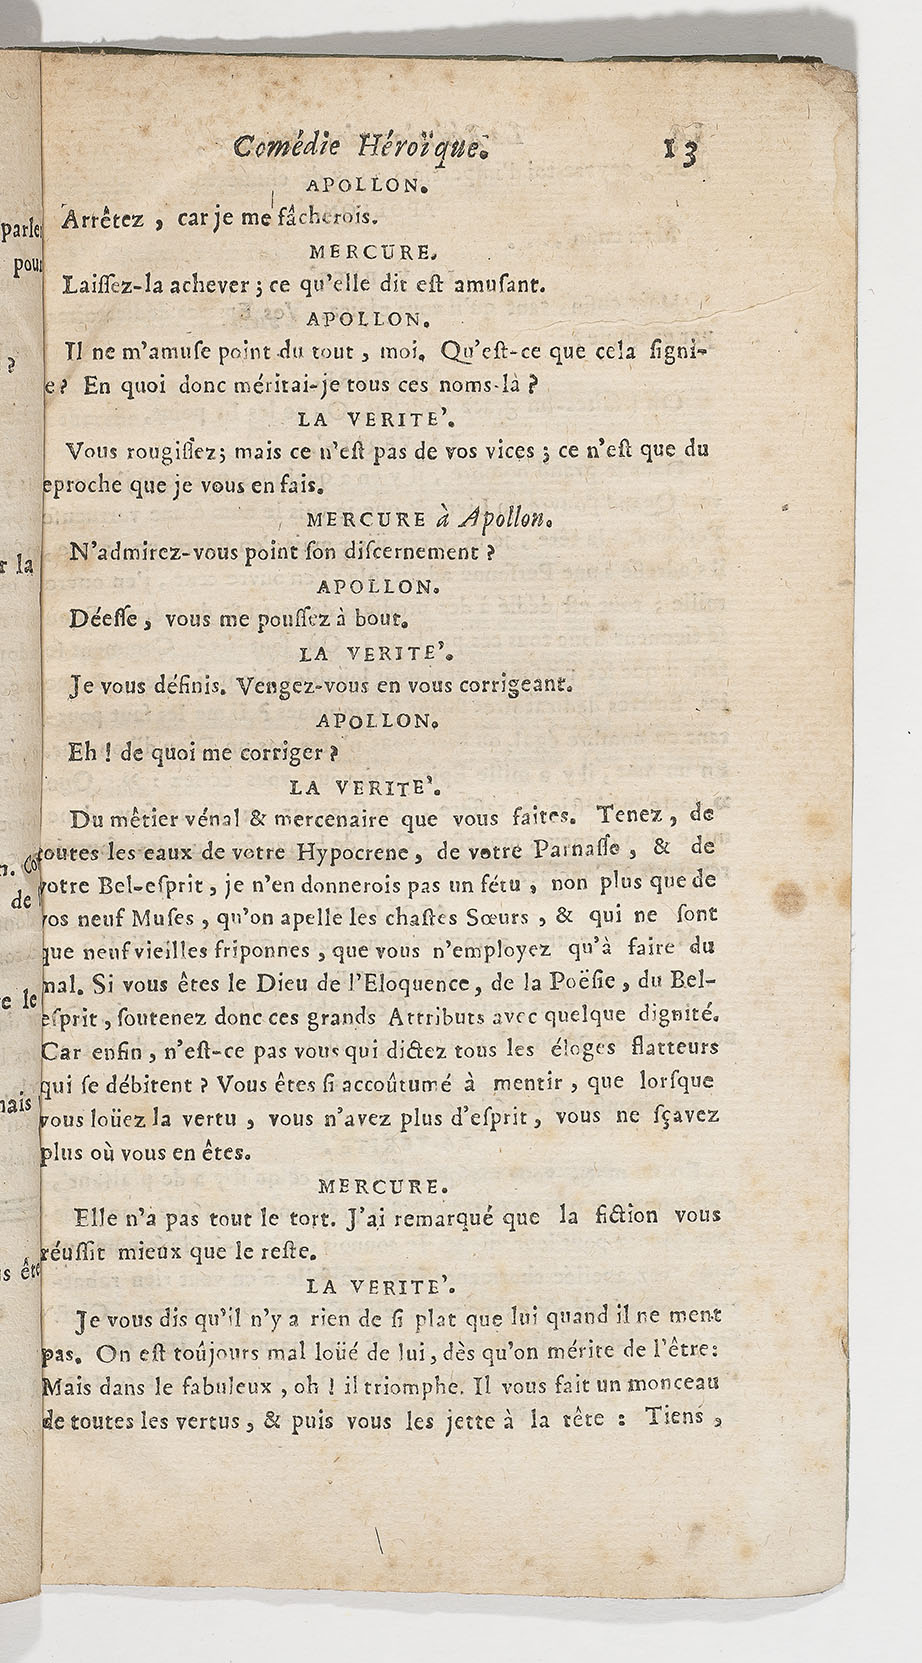 Comédie Héroïque. 13
APOLLON.
Arrêtez, car je me fâcherois.
MERCURE.
Laiſſez-la achever; ce qu'elle dit eſt amuſant.
APOLLON.
Il ne m'amuſe point du tout, moi. Qu'eſt-ce que cela ſigni-
e? En quoi donc méritai-je tous ces noms-là?
LA VERITE'.
Vous rougiſſez; mais ce n'eſt pas de vos vices; ce n'eſt que du
eproche que je vous en fais.
MERCURE à Apollon.
N'admirez-vous point ſon diſcernement?
APOLLON.
Déeſſe, vous me pouſſez à bout.
LA VERITE'.
Je vous définis. Vengez-vous en vous corrigeant.
APOLLON.
Eh! de quoi me corriger?
LA VERITE'.
Du mêtier vénal & mercenaire que vous faites. Tenez, de
toutes les eaux de votre Hypocrene, de votre Parnaſſe, & de
votre Bel-eſprit, je n'en donnerois pas un fétu, non plus que de
vos neuf Muſes, qu'on apelle les chaſtes Sœurs, & qui ne ſont
que neuf vieilles friponnes, que vous n'employez qu'à faire du
mal. Si vous êtes le Dieu de l'Eloquence, de la Poëſie, du Bel-
eſprit, ſoutenez donc ces grands Attributs avec quelque dignité.
Car enfin, n'eſt-ce pas vous qui dictez tous les éloges flatteurs
qui ſe débitent? Vous êtes ſi accoûtumé à mentir, que lorſque
vous loüez la vertu, vous n'avez plus d'eſprit, vous ne ſçavez
plus où vous en êtes.
MERCURE.
Elle n'a pas tout le tort. J'ai remarqué que la fiction vous
réuſſit mieux que le reſte.
LA VERITE'.
Je vous dis qu'il n'y a rien de ſi plat que lui quand il ne ment
pas. On eſt toûjours mal loüé de lui, dès qu'on mérite de l'être:
Mais dans le fabuleux, oh! il triomphe. Il vous fait un monceau
de toutes les vertus, & puis vous les jette à la tête: Tiens,